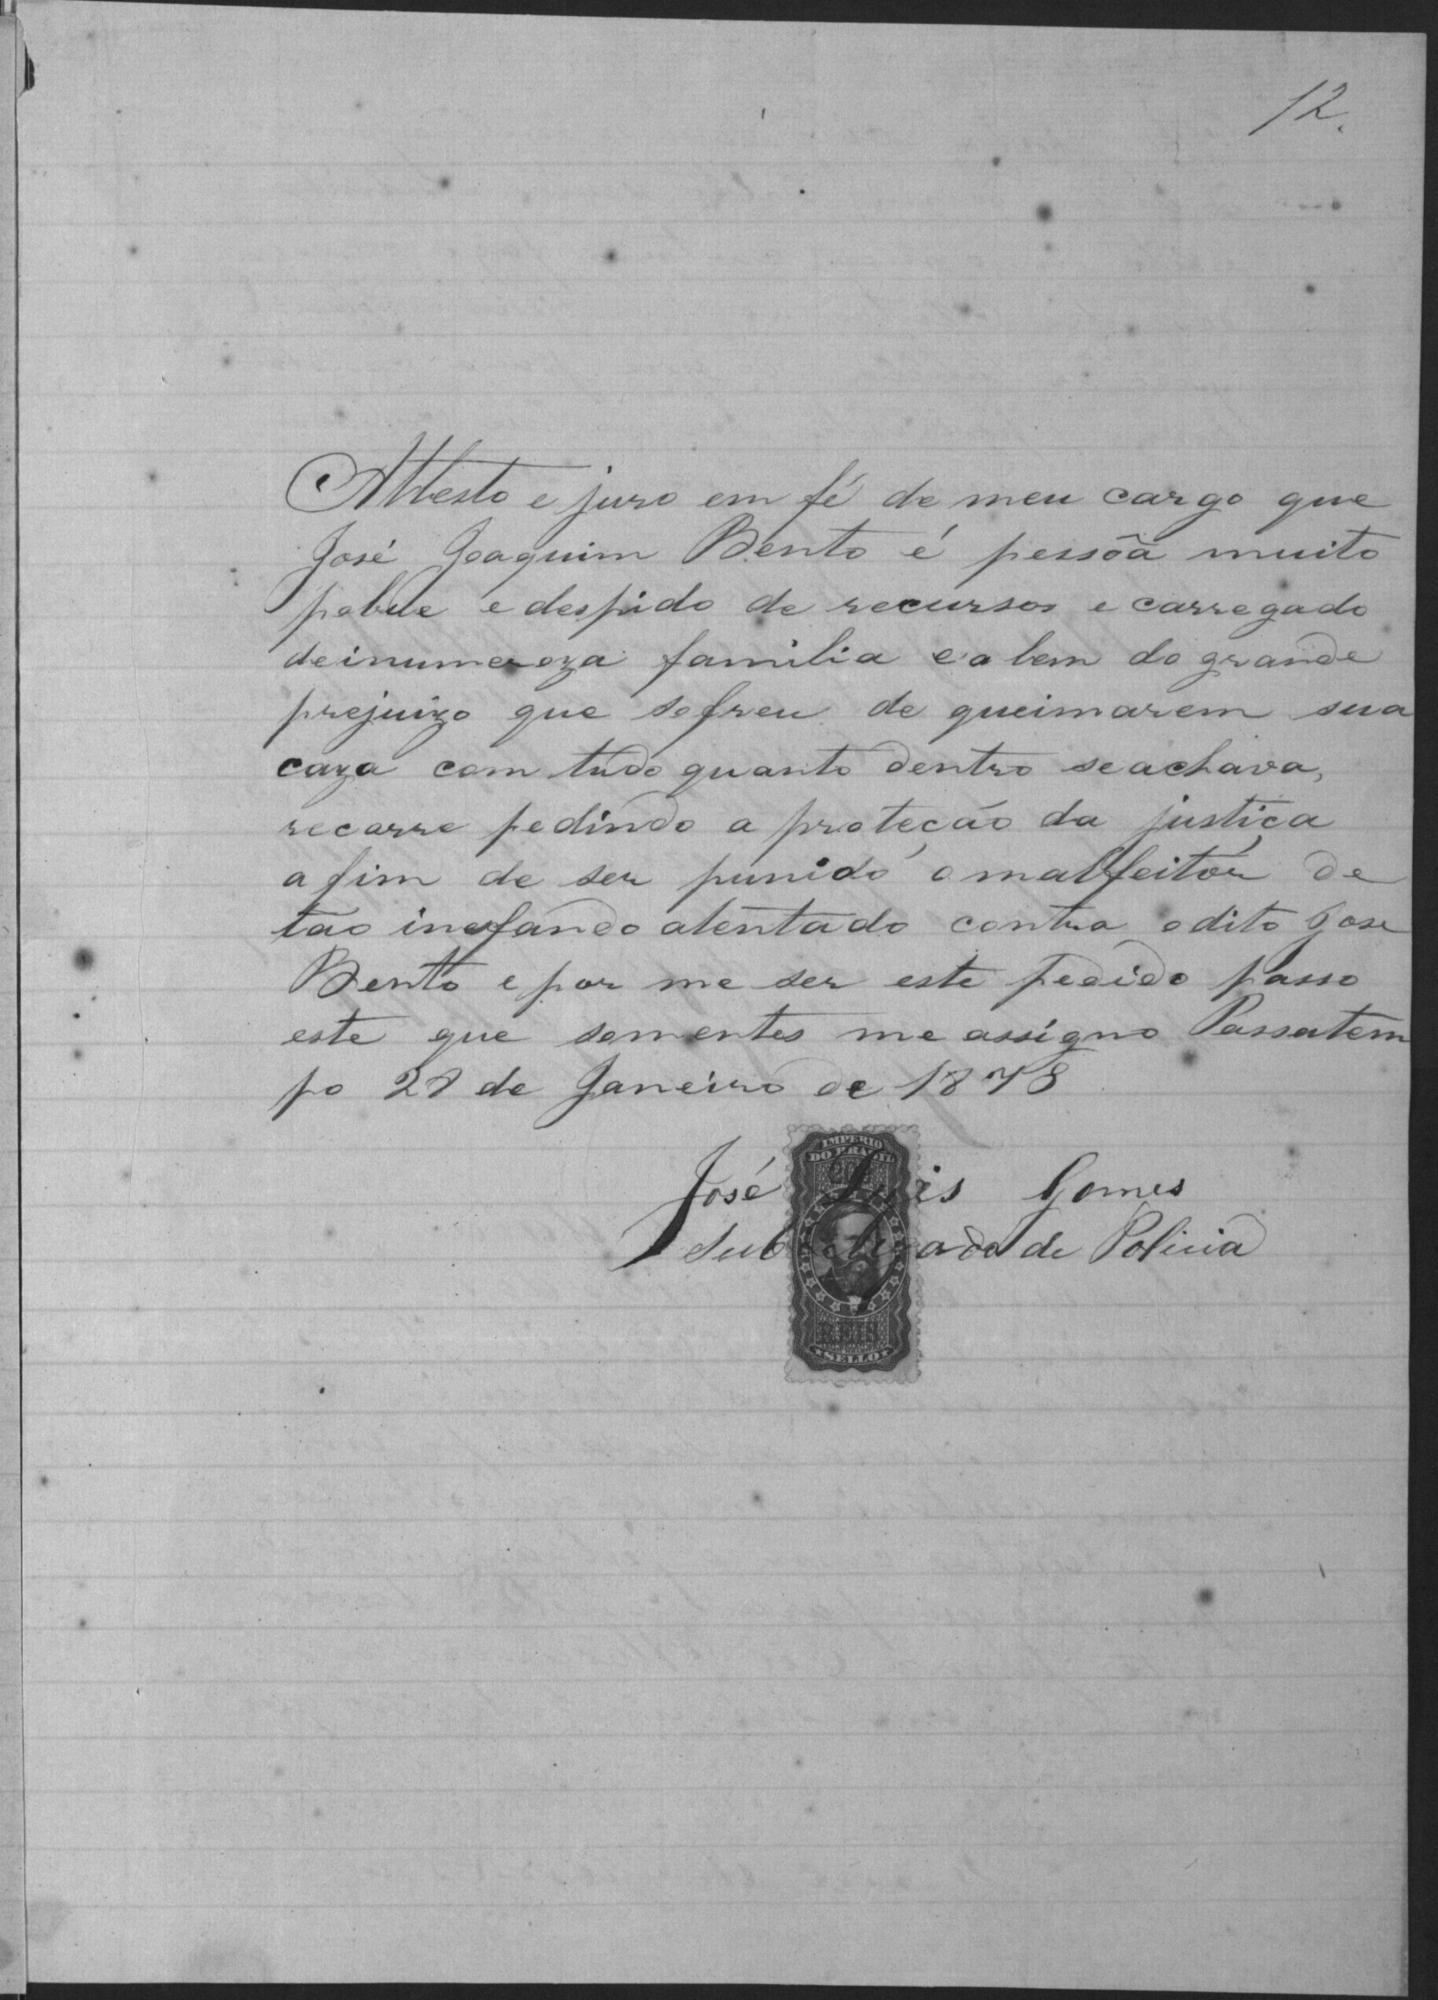 12.
Attesto e juro em fé de meu cargo que
José Joaquim Bento é pessôa muito
pobre e despido de recursos e carregado
deinumeroza familia e alem do grande
prejuizo que sofreu de queimarem sua
caza com tudo quanto dentro seachava,
recorre pedindo a proteção da justiça
afim de ser punido o malfeitór de
tão inefando atentado contra odito José
Bento e por me ser este pedido passo
este que somentes me assigno Passatem
po 28 de Janeiro de 1878
José Luis Gomes
Subdelegado de Policia
IMPERIO
DO BRAZIL
200
REIS
SELLO